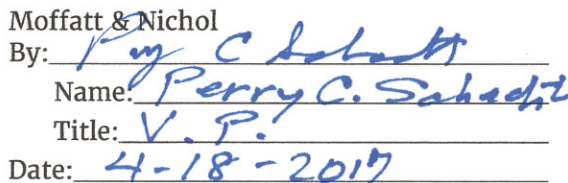 Moffatt & Nichol
By: Perry C Schacht
Name: Perry C. Schacht
Title: V. P.
Date: 4-18-2017